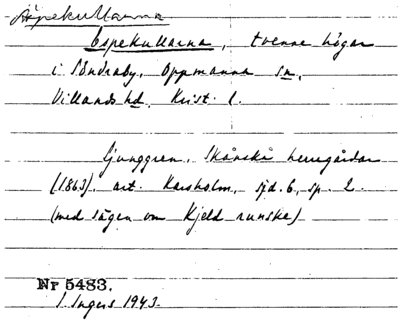 Äspekullarna
Espekullarna, tvenne högar
i Söndraby, Oppmanna sn,
Villands hd, Krist. l.
Ljunggren, Skånska herregårdar
(1863), art. Karsholm, sid. 6, sp. 2.
(med sägen om Kjeld runske)
Nr 5483.
I. Ingers 1943.